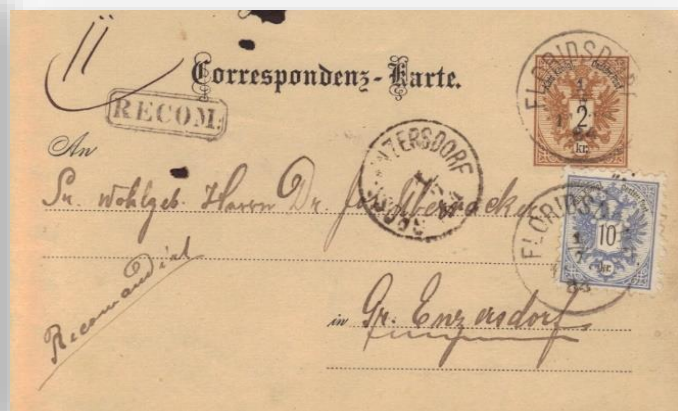 11
Correspondenz-Karte.
RECOM.
FLORIDSDORF
2
kr.
An
Sr. Wohlgeb. Herrn Dr.
ENZERSDORF
FLORIDSDORF
10
kr.
Recomandirt
in Gr. Enzersdorf